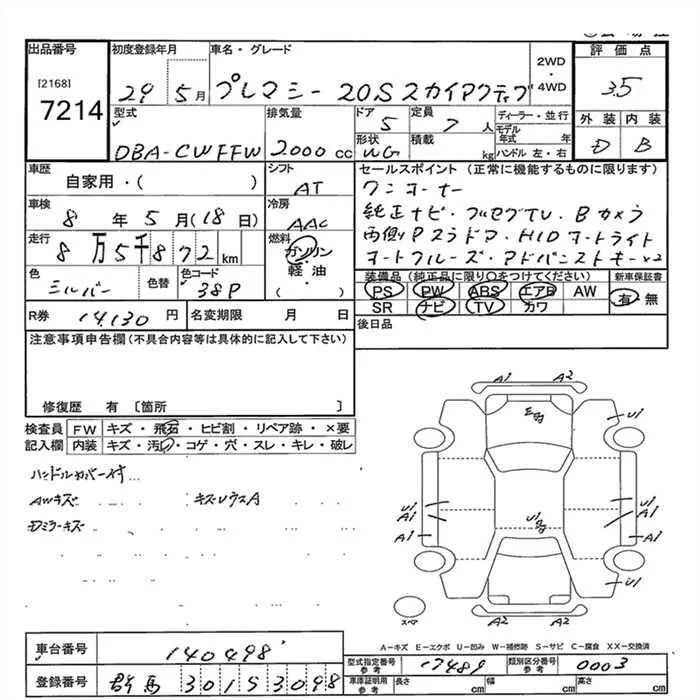 出品番号
[2168]
7214
初度登録年月
29 5月
車名・グレード
プレマシー 20S スカイアクティブ
2WD・4WD
評価点
3.5
外装 内装
D B
型式
DBA-CWFFW
排気量
2000 cc
ドア
5
形状
WG
定員
7 人
積載
kg
ディーラー・並行
モデル年式 年
ハンドル 左・右
車歴
自家用・( )
車検
8 年 5 月 (18 日)
走行
8 万 5 千 872 km
色
シルバー
色替
色コード
38P
シフト
AT
冷房
AAC
燃料
ガソリン
・
軽・油
( )
セールスポイント (正常に機能するものに限ります)
ワンオーナー
純正ナビ・フルセグTV・Bカメラ
両側Pスラドア・HIDオートライト
オートクルーズ・アドバンストキー×2
装備品 (純正品に限り○をつけてください)
PS PW ABS エアB AW
SR ナビ TV カワ
新車保証書
有・無
R券 14,130 円
名変期限 月 日
後日品
注意事項申告欄(不具合内容等は具体的に記入して下さい)
修復歴 有 〔箇所 〕
検査員記入欄
FW キズ・飛石・ヒビ割・リペア跡・×要
内装 キズ・汚れ・コゲ・穴・スレ・キレ・破レ
ハンドルカバー付
AWキズ
キズUウスA
Dミラーキズ
A1 A2
U1
U1
A1
A1
U1
U1
A1
A1
U1
A2 A2
スペア
A-キズ E-エクボ U-凹み W-補修跡 S-サビ C-腐食 XX-交換済
車台番号
140498
登録番号
群馬 301 S 3098
型式指定番号
参考
17489
類別区分番号
参考
0003
車庫証明用
参考
長さ cm
幅 cm
高さ cm